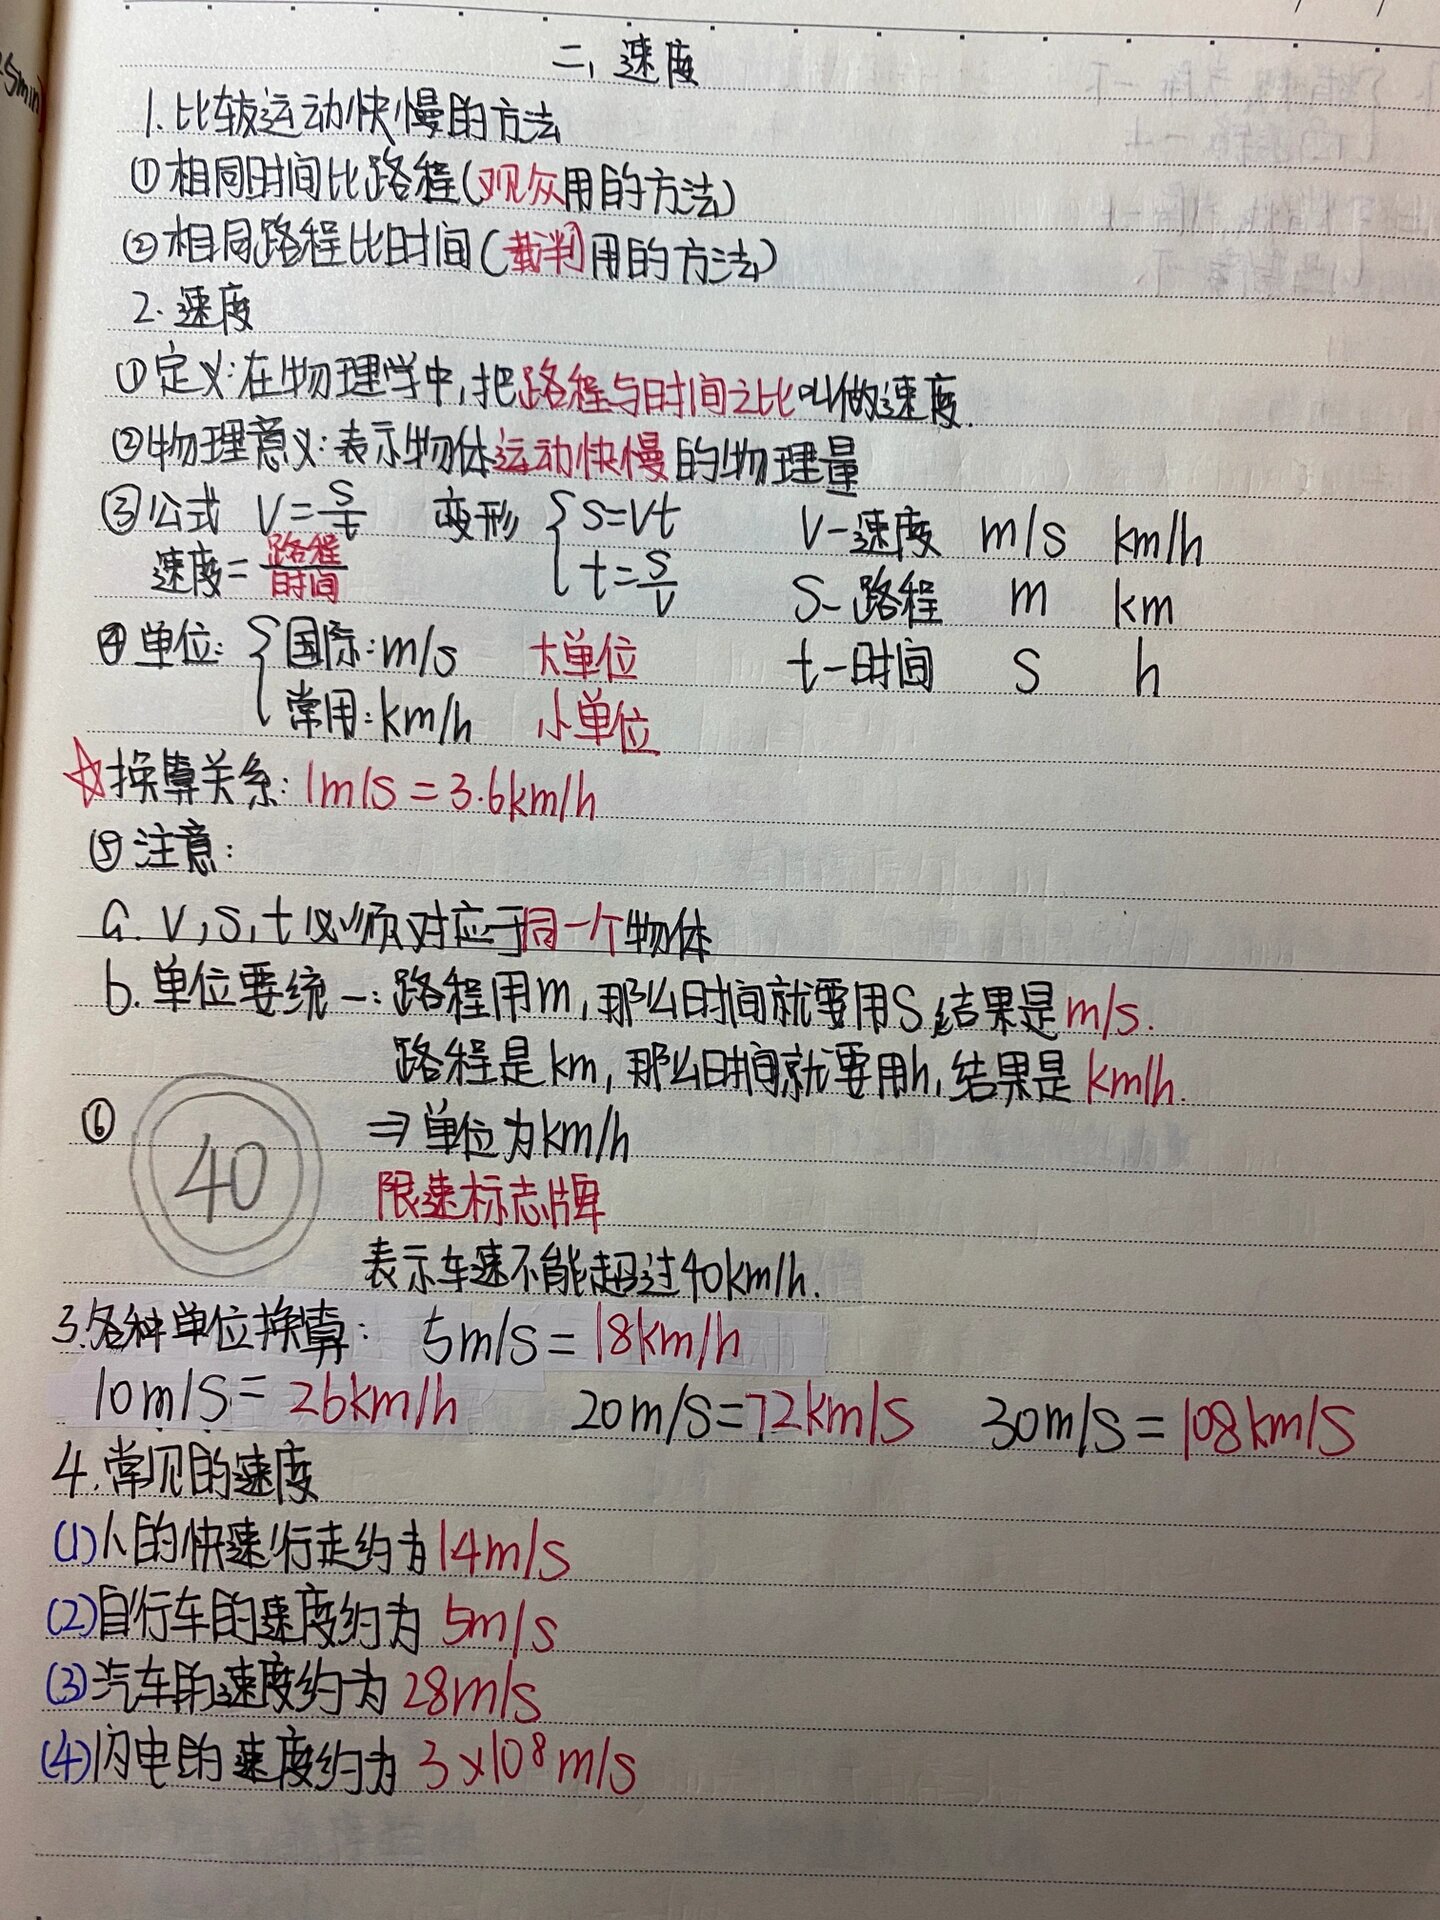 二、速度
1.比较运动快慢的方法
①相同时间比路程(观众用的方法)
②相同路程比时间(裁判用的方法)
2.速度
①定义:在物理学中,把路程与时间之比叫做速度.
②物理意义:表示物体运动快慢的物理量
③公式 V=s/t 变形 { s=vt V-速度 m/s km/h
速度=路程/时间 t=s/v S-路程 m km
④单位: { 国际:m/s 大单位 t-时间 s h
常用:km/h 小单位
☆换算关系:1m/s=3.6km/h
⑤注意:
a. v,s,t必须对应于同一个物体
b. 单位要统一:路程用m,那么时间就要用S,结果是m/s.
路程是km,那么时间就要用h,结果是km/h.
⑥ 40 ⇒单位为km/h
限速标志牌
表示车速不能超过40km/h.
3.各种单位换算: 5m/s=18km/h
10m/s=26km/h 20m/s=72km/s 30m/s=108km/s
4.常见的速度
(1)人的快速行走约为14m/s
(2)自行车的速度约为5m/s
(3)汽车的速度约为28m/s
(4)闪电的速度约为3×10⁸m/s